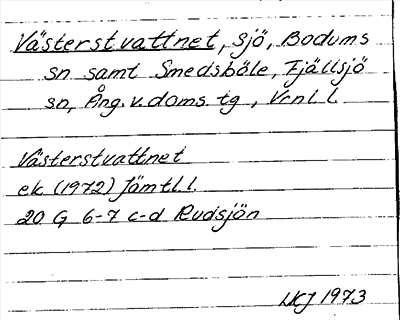 Västerstvattnet, sjö, Bodums
sn samt Smedsböle, Fjällsjö
sn, Ång. v. doms. tg, Vrnl. l.
Västerstvattnet
ek. (1972) Jämtl. l.
20 G 6-7 c-d Rudsjön
1973